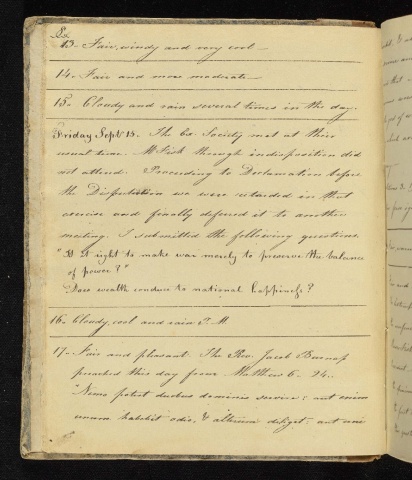 13. Fair, windy and very cool
14. Fair and more moderate
15. Cloudy and rain several times in the day.
Friday Sept. 15. The Society met at their
usual time. Mr Fisk through indisposition did
not attend. Proceeding to Declamation before
the Disputation we were retarded in that
exercise and finally defered it to another
meeting. I submitted the following questions.
"Is it right to make war merely to preserve the balance
of power?"
"Does wealth conduce to national happiness?
16. Cloudy, cool and rain P.M
17. Fair and pleasant. The Rev. Jacob Burnap
preached this day from Matthew 6. 24.
"Nemo potest duobus dominis servire: aut enim
unum habebit odio, & alterum diliget: aut uni